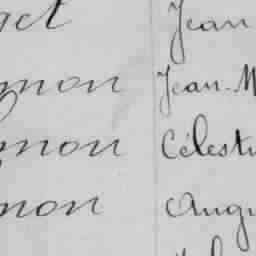 get Jean
mon Jean-M
mon Célesti
non Augu